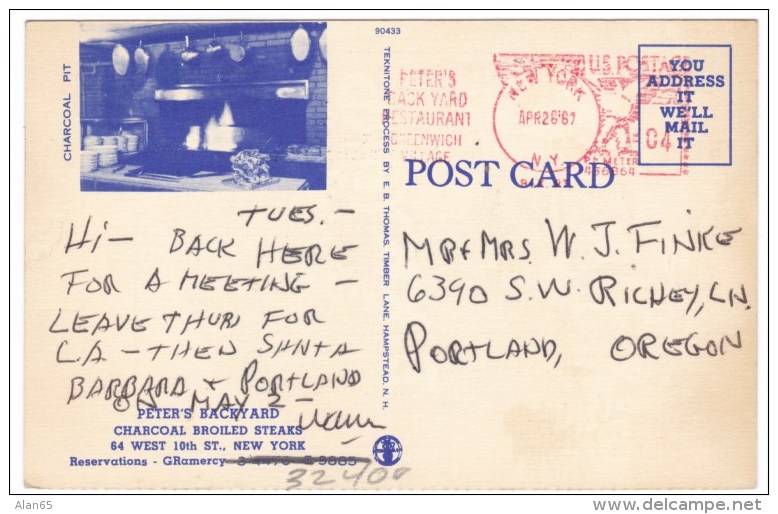 90433
CHARCOAL PIT
TUES. –
HI – BACK HERE
FOR A MEETING –
LEAVE THURS FOR
L.A – THEN SANTA
BARBARA + PORTLAND
ON MAY 2 –
PETER'S BACKYARD
CHARCOAL BROILED STEAKS
64 WEST 10th ST., NEW YORK
Reservations - GRamercy 3-4476 9885
32400
TEKNITONE PROCESS BY E. B. THOMAS, TIMBER LANE, HAMPSTEAD, N. H.
PETER'S
BACK YARD
RESTAURANT
GREENWICH
VILLAGE
NEW YORK
APR 26 '67
N.Y.
U.S. POSTAGE
04
METER
YOU
ADDRESS
IT
WE'LL
MAIL
IT
POST CARD
MR & MRS. W. J. FINKE
6390 S.W. RICHEY, LN.
PORTLAND, OREGON
Alan65
delcampe.net